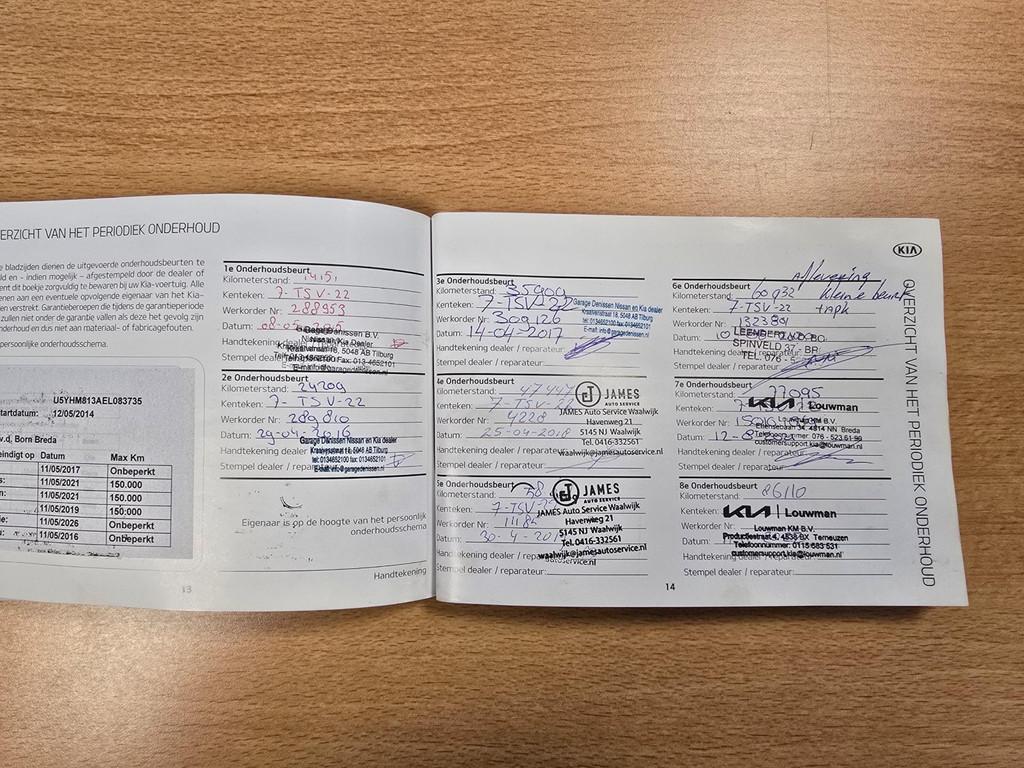 ERZICHT VAN HET PERIODIEK ONDERHOUD
e bladzijden dienen de uitgevoerde onderhoudsbeurten te
ld en - indien mogelijk - afgestempeld door de dealer of
ent dit boekje zorgvuldig te bewaren bij uw Kia-voertuig. Alle
enen aan een eventuele opvolgende eigenaar van het Kia-
en verstrekt. Garantieberoepen die tijdens de garantieperiode
zullen niet onder de garantie vallen als deze het gevolg zijn
nderhoud en dus niet aan materiaal- of fabricagefouten.
persoonlijke onderhoudsschema.
U5YHM813AEL083735
tartdatum: 12/05/2014
v.d. Born Breda
eindigt op Datum Max Km
11/05/2017 Onbeperkt
11/05/2021 150.000
11/05/2021 150.000
11/05/2019 150:000
11/05/2026 Onbeperkt
11/05/2016 Onbeperkt
13
1e Onderhoudsbeurt
Kilometerstand:
Kenteken: 7-TSV-22
Werkorder Nr: 288953
Datum:
Nissan en Kia Dealer
Kraaivenstraat 18, 5048 AB Tilburg
Stempel dealer
2e Onderhoudsbeurt
Kilometerstand: 24209
Kenteken: 7-TSV-22
Werkorder Nr: 289810
Datum: 29-04-2016
Garage Denissen Nissan en Kia dealer
Kraaivenstraat 18, 5048 AB Tilburg
tel: 0134652100 fax: 0134652101
E-mail: info@garagedenissen.nl
Stempel dealer / repara
Eigenaar is op de hoogte van het persoonlijk
onderhoudsschema
Handtekening
3e Onderhoudsbeurt
Kilometerstand: 35909
Kenteken: 7-TSV-22
Werkorder Nr: 309126
Datum: 14-04-2017
Garage Denissen Nissan en Kia dealer
Kraaivenstraat 18, 5048 AB Tilburg
tel: 0134652100 fax: 0134652101
E-mail: info@garagedenissen.nl
Handtekening dealer / reparateur:
Stempel dealer / reparateur:
4e Onderhoudsbeurt
Kilometerstand: 47447
Kenteken: 7-TSV-22
Werkorder Nr: 4228
Datum: 25-04-2018
JAMES
AUTO SERVICE
JAMES Auto Service Waalwijk
Havenweg 21
5145 NJ Waalwijk
Tel. 0416-332561
waalwijk@jamesautoservice.nl
Handtekening dealer / reparateur:
Stempel dealer / reparateur:
5e Onderhoudsbeurt
Kilometerstand: 58
Kenteken: 7-TSV-22
Werkorder Nr:
Datum: 30-4-201
JAMES
AUTO SERVICE
JAMES Auto Service Waalwijk
Havenweg 21
5145 NJ Waalwijk
Tel. 0416-332561
waalwijk@jamesautoservice.nl
Handtekening dealer / reparateur:
Stempel dealer / reparateur:
14
KIA
OVERZICHT VAN HET PERIODIEK ONDERHOUD
Aflevering
6e Onderhoudsbeurt
kleine beurt
Kilometerstand: 60932
Kenteken: 7-TSV-22
Werkorder Nr: 132389
Datum: 10
SPINVELD 37
TEL. 076 - 5
Handtekening dealer / reparateur:
Stempel dealer / reparateur:
7e Onderhoudsbeurt
Kilometerstand: 77095
Kenteken: 7
KIA Louwman
Werkorder Nr:
Datum: 12-8
Handtekening dealer / reparateur:
Stempel dealer / reparateur:
8e Onderhoudsbeurt
Kilometerstand: 86110
Kenteken:
KIA Louwman
Werkorder Nr:
Louwman KM B.V.
Datum:
Productiestraat 4, 4538 BX Terneuzen
Telefoonnummer: 0115 683 531
customersupport.kia@louwman.nl
Handtekening dealer / reparateur:
Stempel dealer / reparateur: